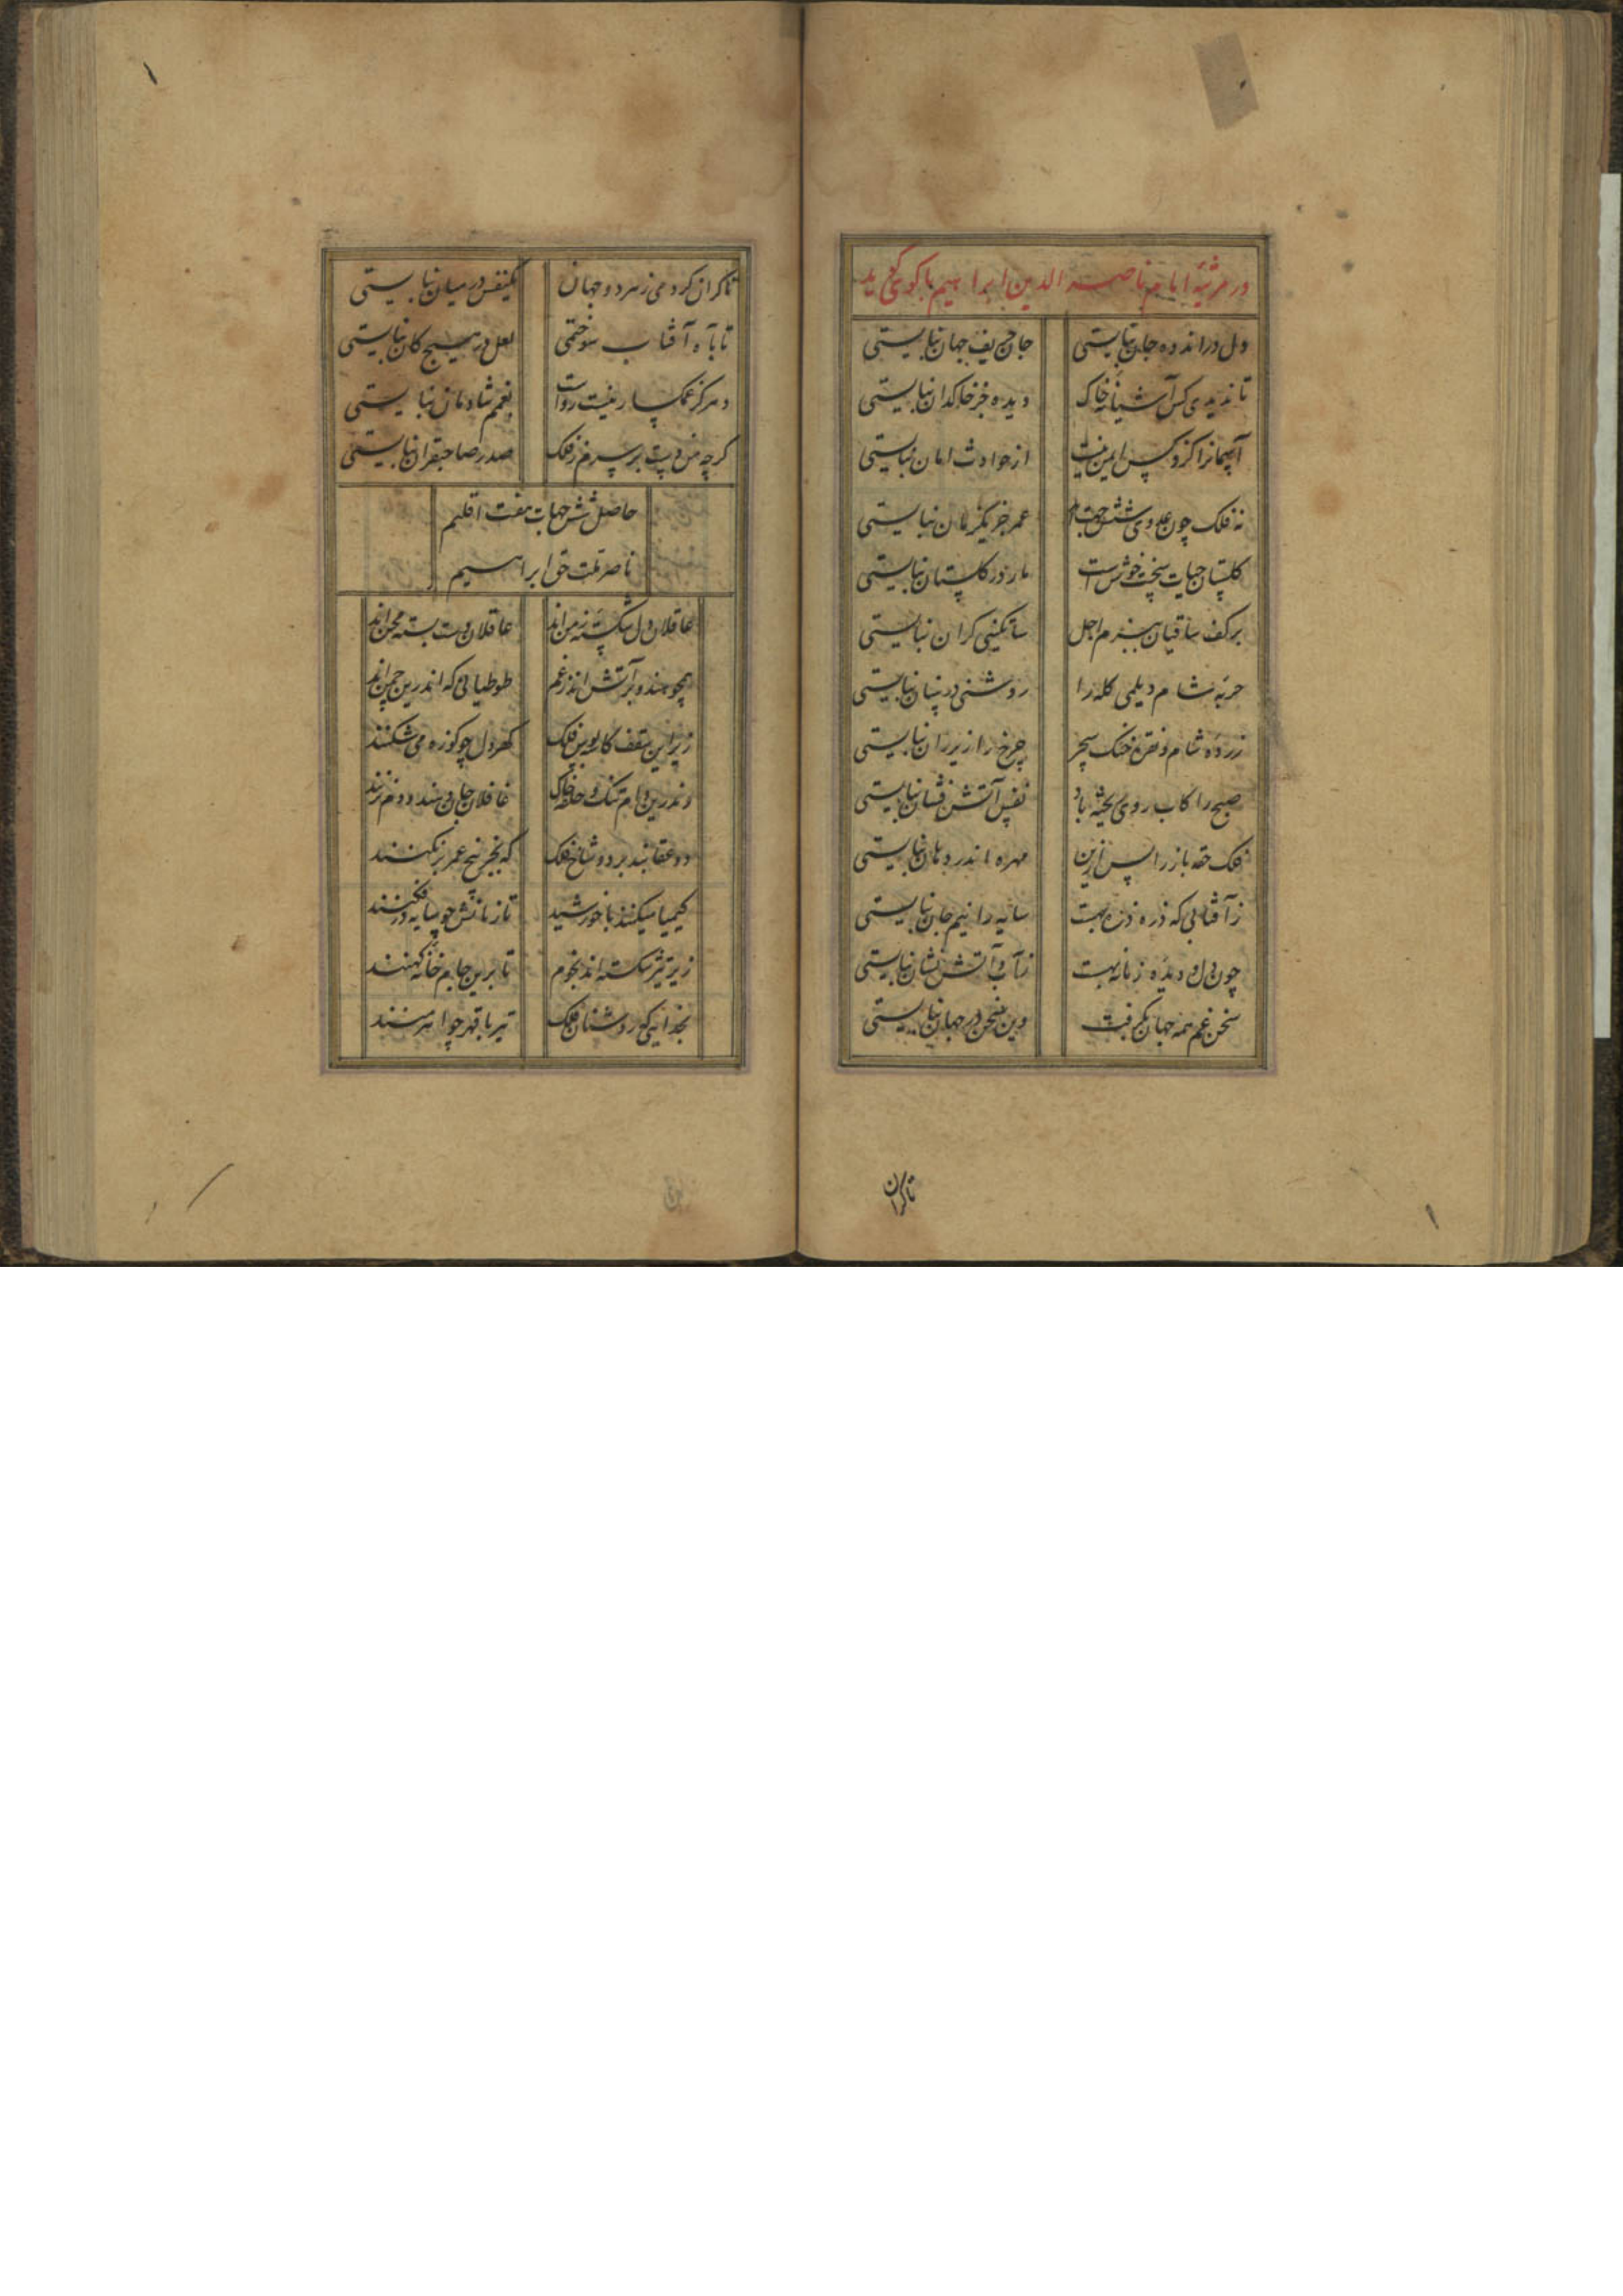 در مرثیهٔ امام ناصر الدین ابراهیم باکوئی گوید
دل در اندوه جان نبایستی جان حریف جهان نبایستی
تا ندیدی کس آشیانه خاک دیده جز خاکدان نبایستی
آسمانرا کزو کس ایمن نیست از حوادث امان نبایستی
نه فلک چون عدوی شش جهت عمر جز یکزمان نبایستی
گلستان حیات سخت خوش است مار در گلستان نبایستی
بر کف ساقیان بزم اجل ساتگینی گران نبایستی
حربه شام دیلمی کله را روشنی در سنان نبایستی
زرده شام و نقره خنگ سحر چرخ را زیر ران نبایستی
صبح را کاب روی ریخته باد نفس آتش فشان نبایستی
فلک حقه باز را پس ازین مهره اندر دهان نبایستی
ز آفتابی که ذره ذره بهست سایه را نیم جان نبایستی
چون دل و دیده زمانه بهست ز آب و آتش نشان نبایستی
سخن غم همه جهان بگرفت وین سخن در جهان نبایستی
تاکران
تا کران کردمی ز هر دو جهان یکنفس در میان نبایستی
تا به آه آفتاب سوختمی لعل در هیچ کان نبایستی
و هر کز غمگسار نیست رواست بغمم شادمان نبایستی
گرچه من دست بر سرم ز فلک صدر صاحبقران نبایستی
حاصل شش جهات هفت اقلیم
ناصر ملت حق ابراهیم
عاقلان دل شکسته زمن اند عاقلان دست بسته محن اند
همچو هندو بر آتش اند ز غم طوطیانی که اندرین چمن اند
زیر این سقف کاسه بین فلک گهر دل چو کوزه می شکنند
وندرین دام تنگ و حلقه خاک غافلان جان دهند و دم نزنند
دو عقابند بر دو شاخ فلک که بجز بیخ عمر بر نکنند
کیمیا میکنند با خورشید تا زمانش چو سایه در فکنند
زیر تیر شکسته اند نجوم تا برین جام خانه کهنند
بخدائی که روشنان فلک تیر با قهر چو اهرمنند